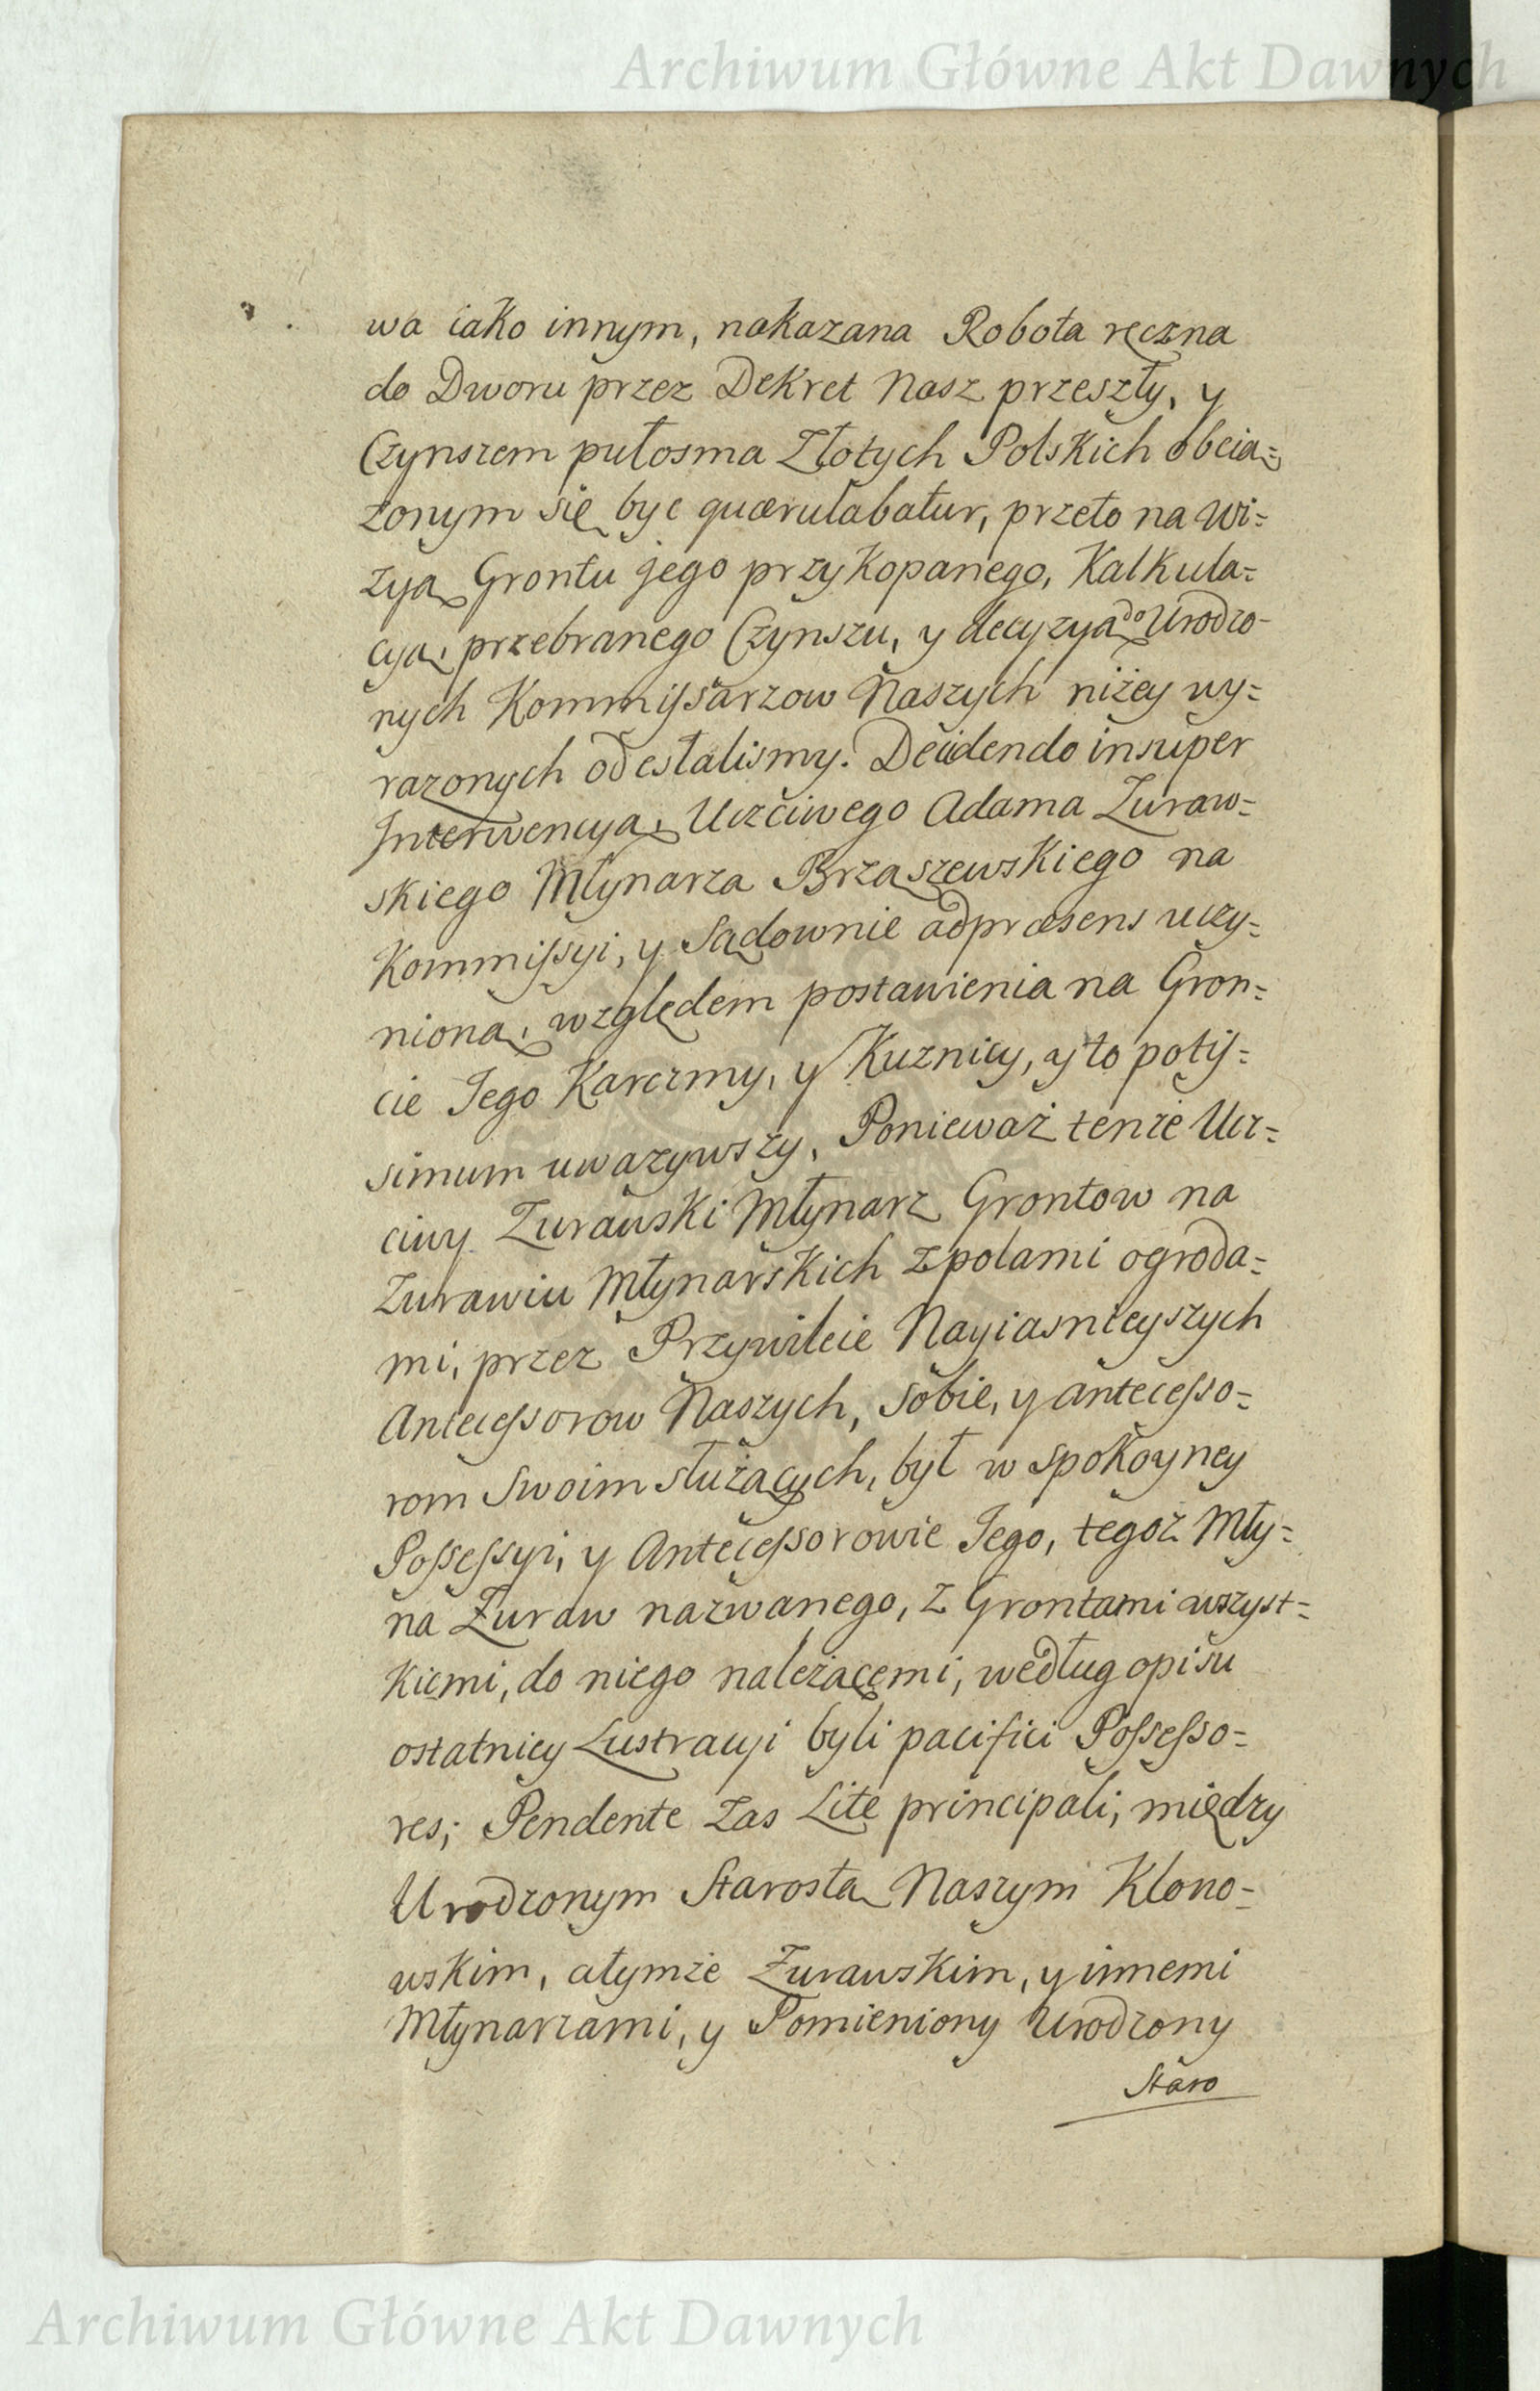 Archiwum Główne Akt Dawnych
wa iako innym, nakazana Robota ręczna
do Dworu przez Dekret Nasz przeszły, y
Czynszem pułosma Złotych Polskich obcią=
zonym się byc quærulabatur, przeto na Wi=
zyą Grontu jego przykopanego, Kalkula=
cyą, przebranego Czynszu, y decyzyą do Urodzo-
nych Kommissarzow Naszych niżey wy=
razonych odesłalismy. Decidendo insuper
Interwencyą, Uczciwego Adama Zuraw=
skiego Młynarza Brząszewskiego na
Kommissyi, y Sądownie adpræsens uczy=
nioną, względem postawienia na Gron=
cie Jego Karczmy, y Kuznicy, a to potis=
simum uwazywszy, Ponieważ tenże Ucz=
ciwy Zurawski Młynarz Grontow na
Zurawiu Młynarskich z polami ogroda=
mi, przez Przywileie Nayiasnieyszych
Antecessorow Naszych, Sobie, y antecesso=
rom Swoim służących, był w spokoyney
Possessyi, y Antecessorowie Jego, tegoż Mły=
na Żuraw nazwanego, z Grontami wszyst=
kiemi, do niego należącemi, według opisu
ostatniey Lustracyi byli pacifici Possesso=
res; Pendente zas Lite principali, między
Urodzonym Starostą Naszym Klono=
wskim, a tymże Żurawskim, y innemi
Młynarzami, y Pomieniony Urodzony
Staro
Archiwum Główne Akt Dawnych